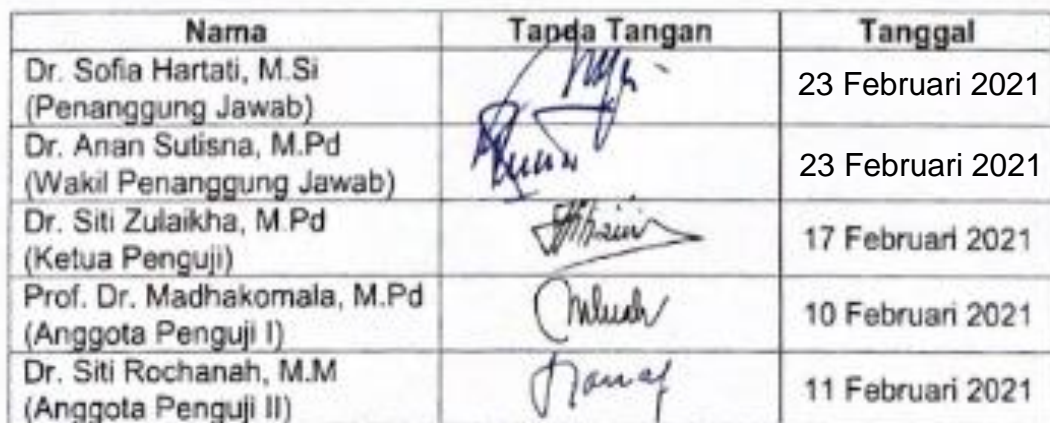 Nama Tanda Tangan Tanggal
Dr. Sofia Hartati, M.Si
(Penanggung Jawab)
23 Februari 2021
Dr. Anan Sutisna, M.Pd
(Wakil Penanggung Jawab)
23 Februari 2021
Dr. Siti Zulaikha, M.Pd
(Ketua Penguji)
17 Februari 2021
Prof. Dr. Madhakomala, M.Pd
(Anggota Penguji I)
10 Februari 2021
Dr. Siti Rochanah, M.M
(Anggota Penguji II)
11 Februari 2021